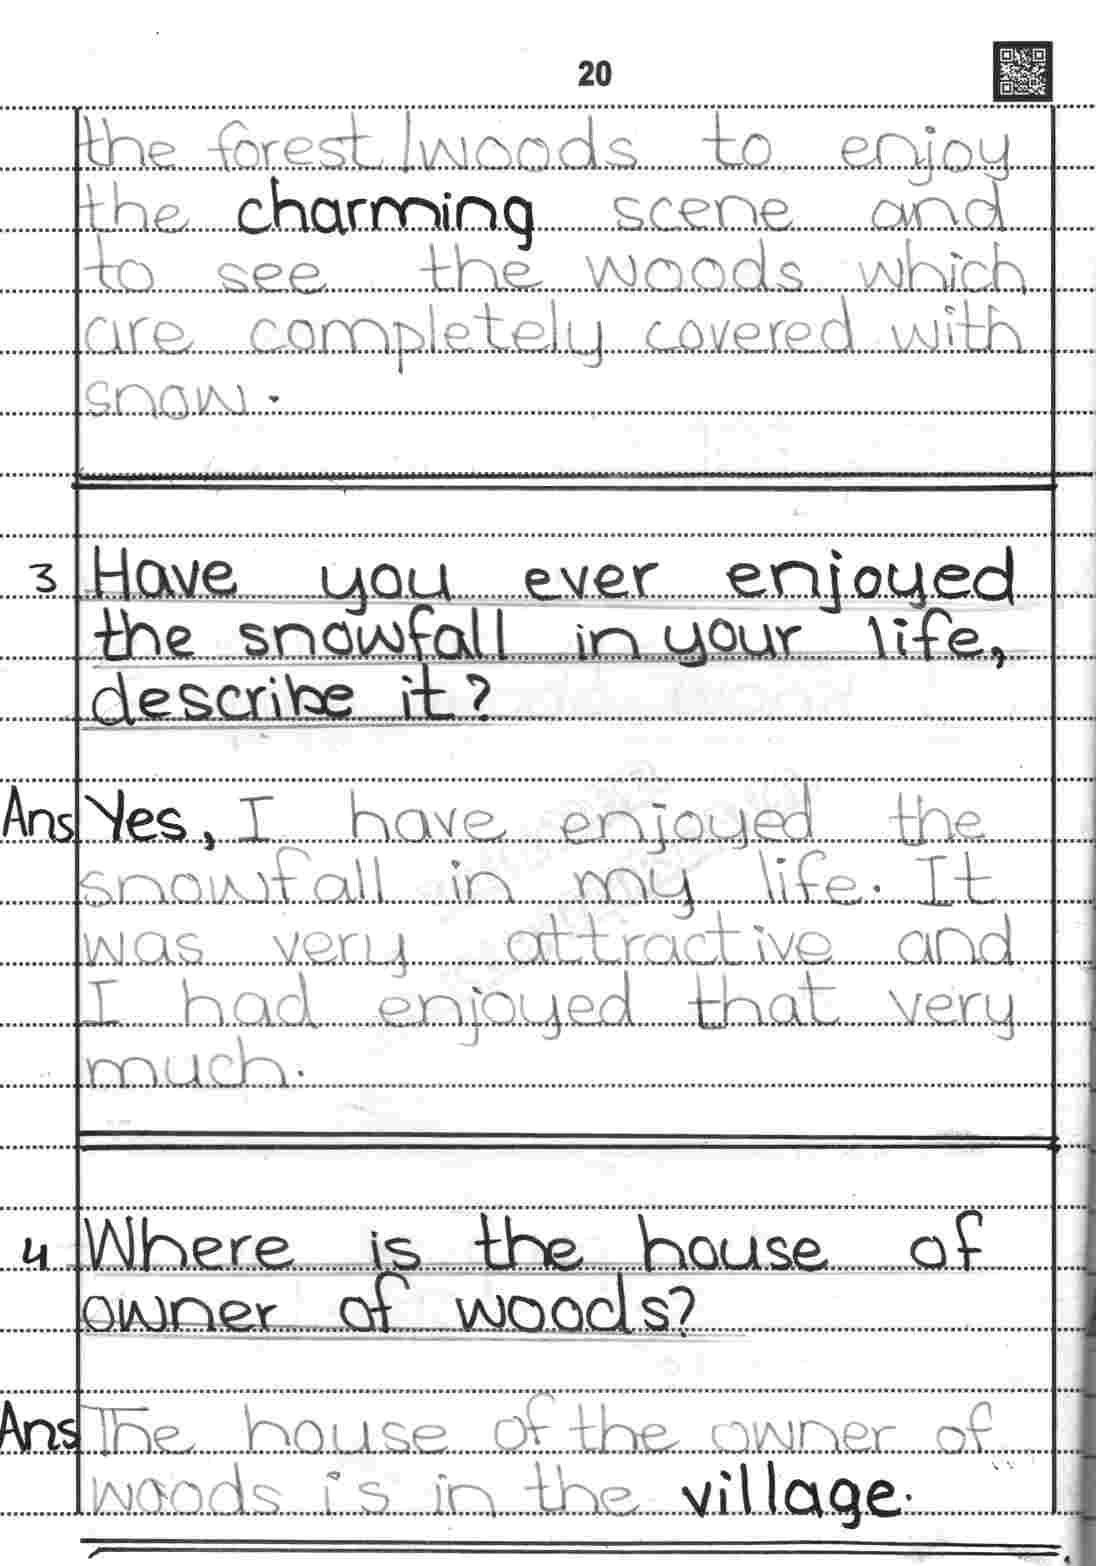 20
the forest/woods to enjoy
the charming scene and
to see the woods which
are completely covered with
snow.
3 Have you ever enjoyed
the snowfall in your life,
describe it?
Ans Yes, I have enjoyed the
snowfall in my life. It
was very attractive and
I had enjoyed that very
much.
4 Where is the house of
owner of woods?
Ans The house of the owner of
woods is in the village.